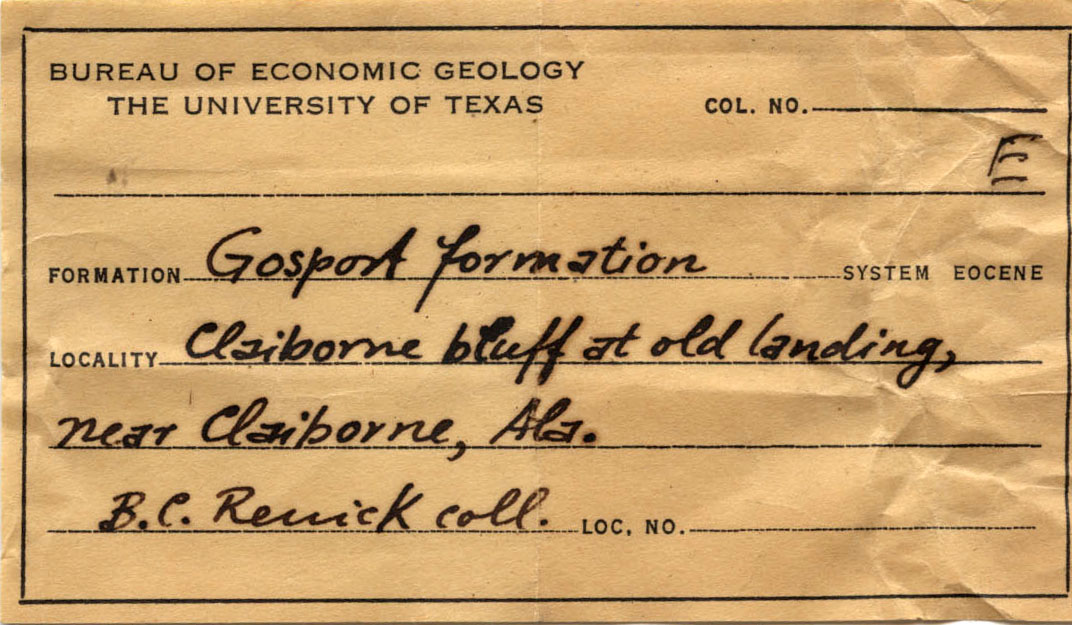 BUREAU OF ECONOMIC GEOLOGY
THE UNIVERSITY OF TEXAS
COL. NO.
E
FORMATION Gosport formation SYSTEM EOCENE
LOCALITY Claiborne bluff at old landing,
near Claiborne, Ala.
B.C. Renick coll. LOC. NO.